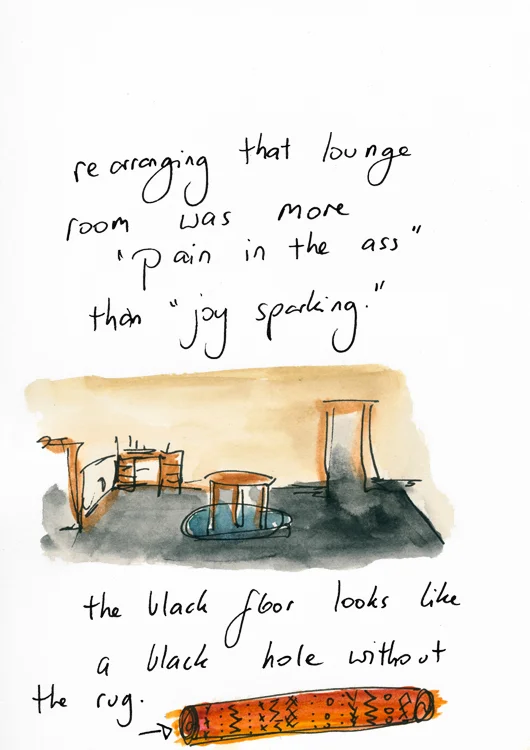 rearranging that lounge
room was more
"pain in the ass"
than "joy sparking."
the black floor looks like
a black hole without
the rug.